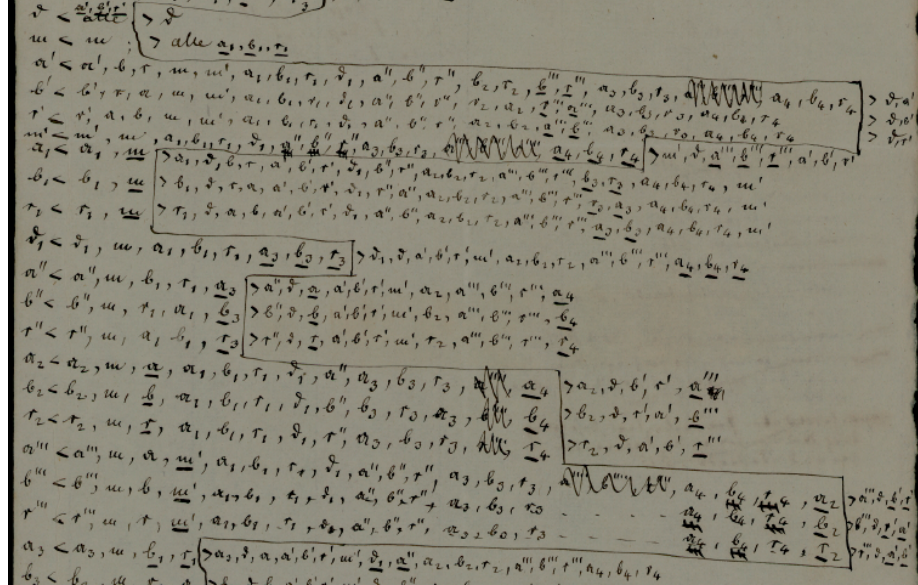 d < a', b', r' > d
m < m ; > alle a₁, b₁, r₁
a' < a', b, r, m, m', a₁, b₁, r₁, d₁, a'', b'', r'', b₂, r₂, b''', r''', a₃, b₃, r₃, a₄, b₄, r₄ > d, a'
b' < b', r, a, m, m', a₁, b₁, r₁, d₁, a'', b'', r'', r₂, a₂, r''', a''', a₃, b₃, r₃, a₄, b₄, r₄ > d, b'
r' < r', a, b, m, m', a₁, b₁, r₁, d₁, a'', b'', r'', a₂, b₂, a''', b''', a₃, b₃, r₃, a₄, b₄, r₄ > d, r'
m' < m', m, a₁, b₁, r₁, d₁, a₃, b₃, r₃, a₄, b₄, r₄ > m', d, a''', b''', r''', a', b', r'
a₁ < a₁, m > a₁, d, b, r, a', b', r', d₁, b'', r'', a₂, b₂, r₂, a''', b''', r''', b₃, r₃, a₄, b₄, r₄, m'
b₁ < b₁, m > b₁, d, r, a, a', b', r', d₁, r'', a'', a₂, b₂, r₂, a''', b''', r''', r₃, a₃, a₄, b₄, r₄, m'
r₁ < r₁, m > r₁, d, a, b, a', b', r', d₁, a'', b'', a₂, b₂, r₂, a''', b''', r''', a₃, b₃, a₄, b₄, r₄, m'
d₁ < d₁, m, a₁, b₁, r₁, a₃, b₃, r₃ > d₁, d, a', b', r', m', a₂, b₂, r₂, a''', b''', r''', a₄, b₄, r₄
a'' < a'', m, b₁, r₁, a₃ > a'', d, a, a', b', r', m', a₂, a''', b''', r''', a₄
b'' < b'', m, r₁, a₁, b₃ > b'', d, b, a', b', r', m', b₂, a''', b''', r''', b₄
r'' < r'', m, a₁, b₁, r₃ > r'', d, r, a', b', r', m', r₂, a''', b''', r''', r₄
a₂ < a₂, m, a, a₁, b₁, r₁, d₁, a'', a₃, b₃, r₃, a₄ > a₂, d, b', r', a'''
b₂ < b₂, m, b, a₁, b₁, r₁, d₁, b'', b₃, r₃, a₃, b₄ > b₂, d, r', a', b'''
r₂ < r₂, m, r, a₁, b₁, r₁, d₁, r'', a₃, b₃, r₃, r₄ > r₂, d, a', b', r'''
a''' < a''', m, a, m', a₁, b₁, r₁, d₁, a'', b'', r'', a₃, b₃, r₃, a₄, b₄, r₄, a₂ > a''', d, b', r'
b''' < b''', m, b, m', a₁, b₁, r₁, d₁, a'', b'', r'', a₃, b₃, r₃ - - - - a₄, b₄, r₄, b₂ > b''', d, r', a'
r''' < r''', m, r, m', a₁, b₁, r₁, d₁, a'', b'', r'', a₃, b₃, r₃ - - - - a₄, b₄, r₄, r₂ > r''', d, a', b'
a₃ < a₃, m, b₁, r₁ > a₃, d, a, a', b', r', m', d₁, a'', a₂, b₂, r₂, a''', b''', r''', a₄, b₄, r₄